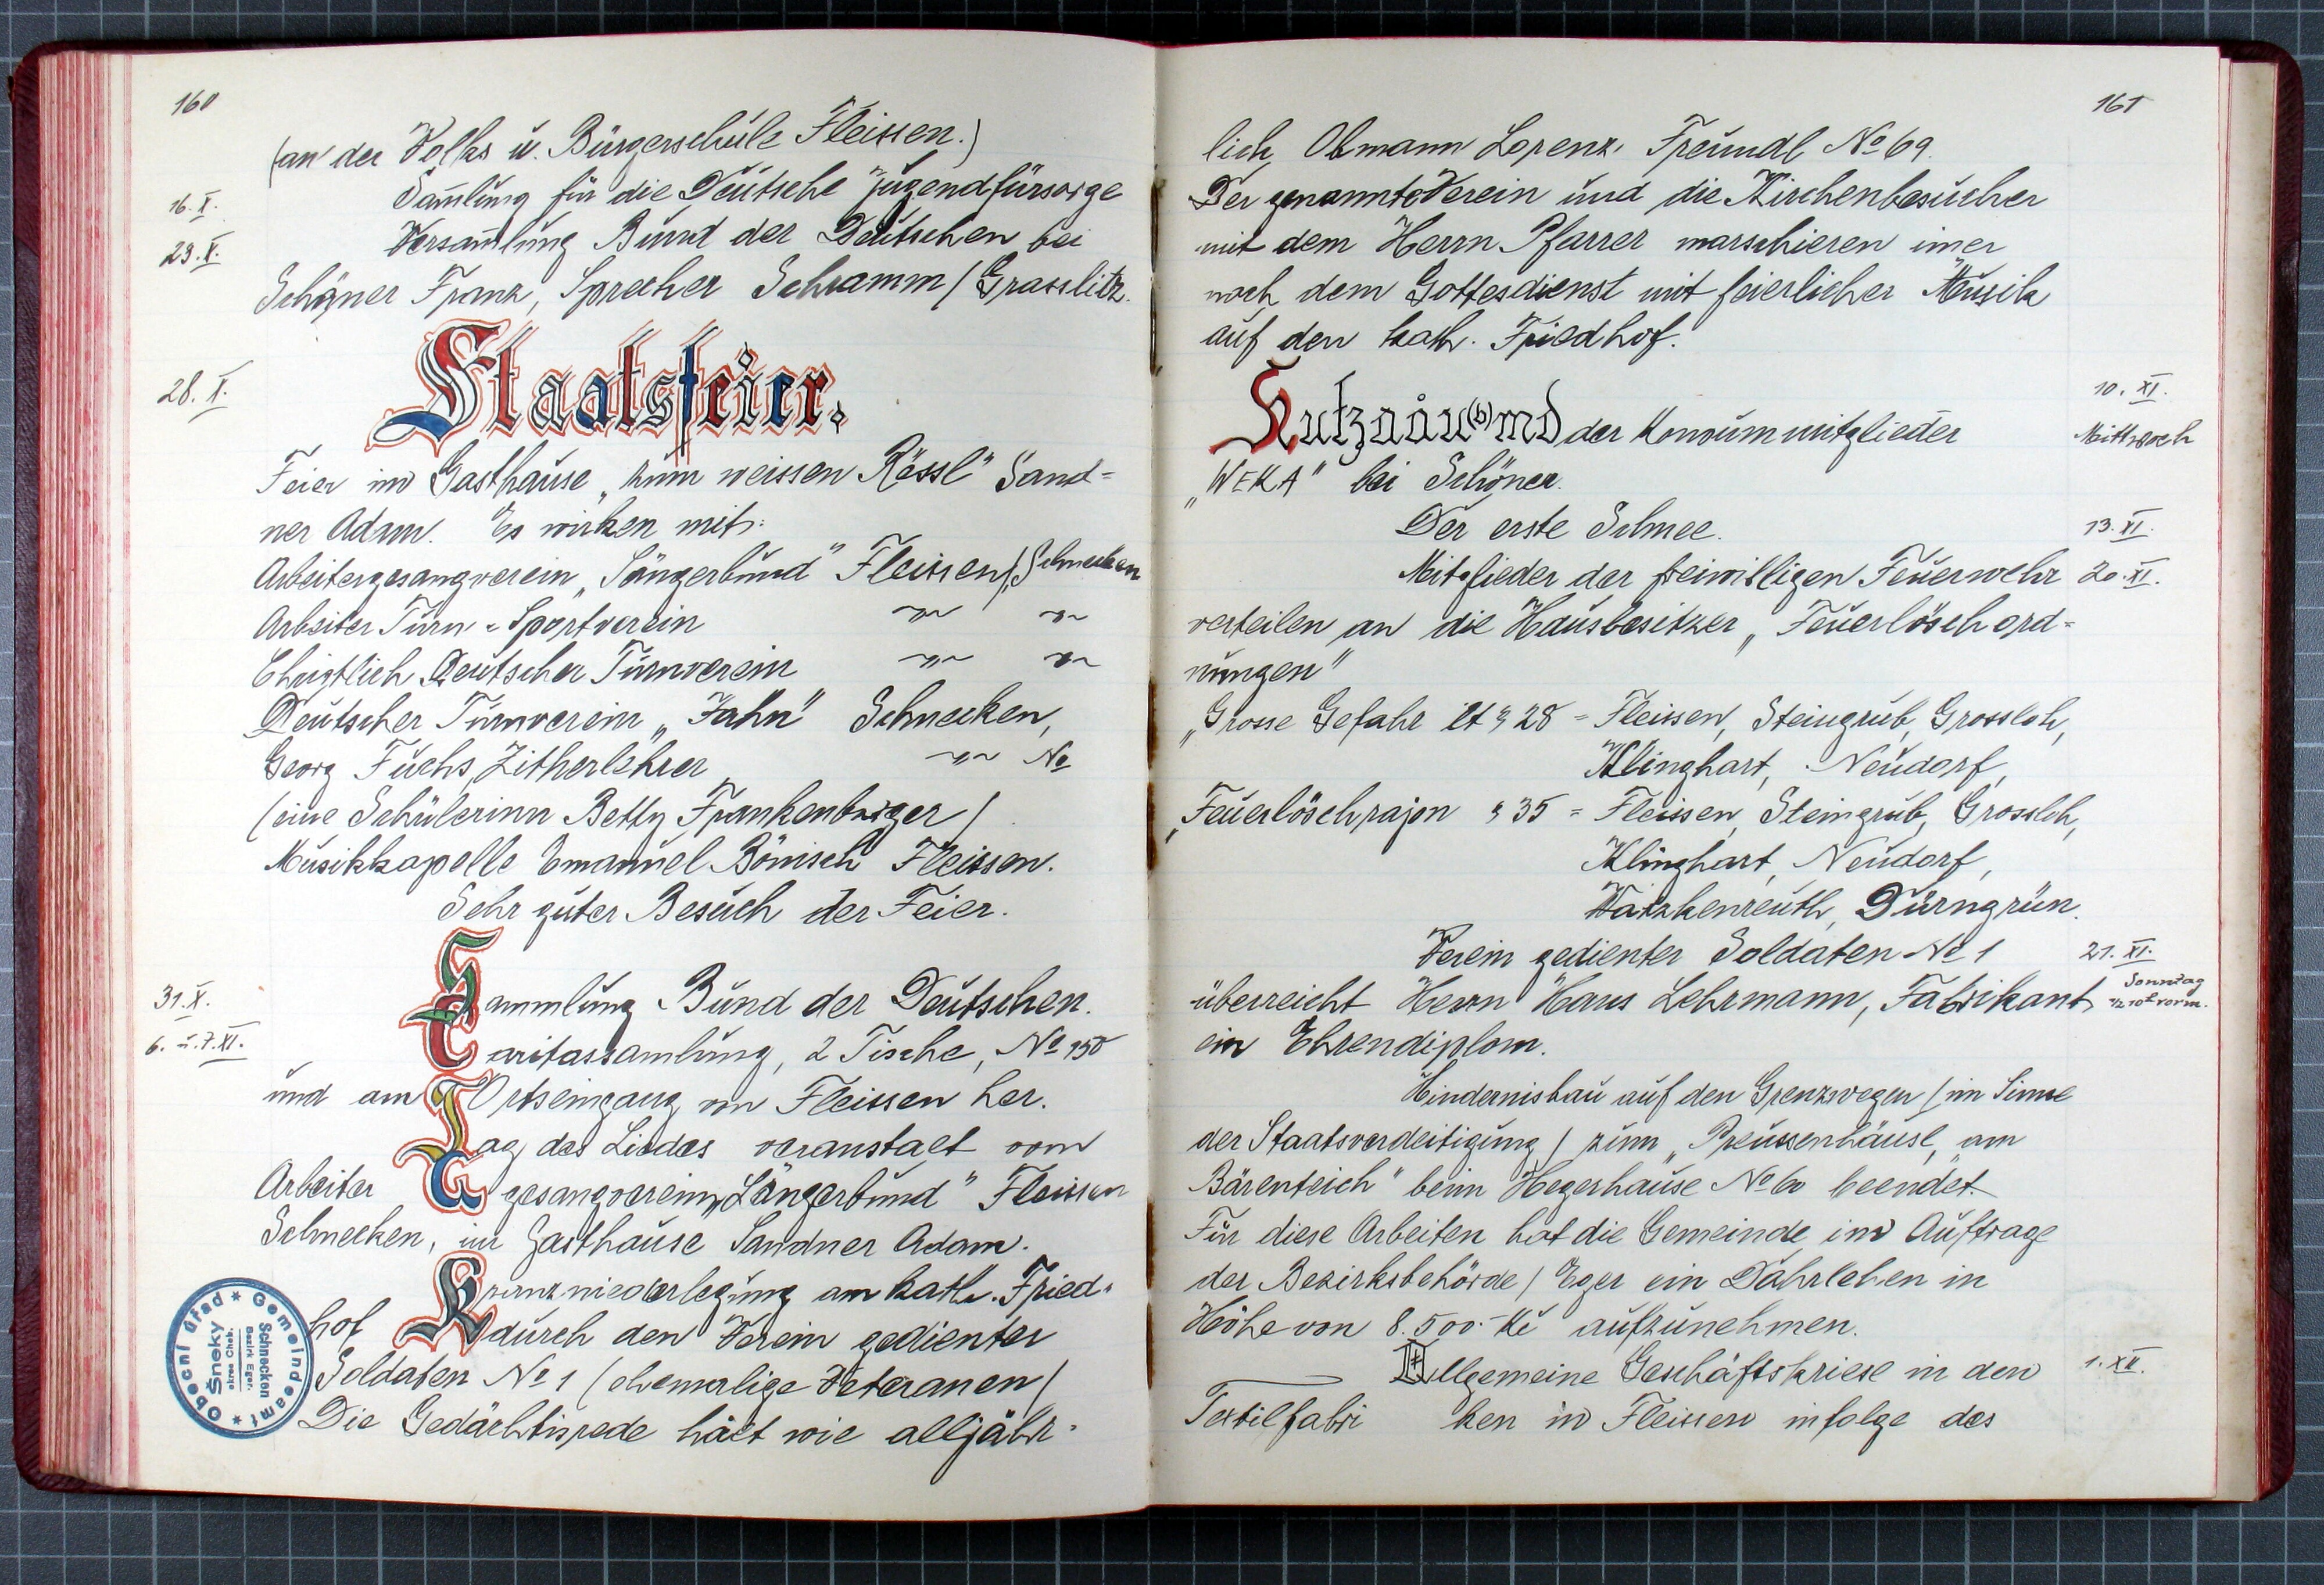 160
(an der Volks u. Bürgerschule Fleissen.)
16. X. Sam̄lung für die Deutsche Jugendfürsorge
23. X. Versam̄lung Bund der Deutschen bei
Schöner Franz, Sprecher Schramm / Grasslitz.
28. X. Staatsfeier.
Feier im Gasthause „zum weissen Rössl" Sand=
ner Adam. Es wirken mit:
Arbeitergesangverein „Sängerbund" Fleissen/Schnecken
Arbeiter Turn- Sportverein -„- -„-
Christlich Deutscher Turnverein -„- -„-
Deutscher Turnverein „Jahn" Schnecken,
Georg Fuchs, Zitherlehrer -„- No
(eine Schülerinn Betty Frankenberger)
Musikkapelle Emanuel Bönisch Fleissen.
Sehr guter Besuch der Feier.
31. X. Sammlung Bund der Deutschen.
6. u. 7. XI. Caritassamlung, 2 Tische, No 150
und am Ortseingang von Fleissen her.
Tag des Liedes veranstalt vom
Arbeiter Gesangverein „Sängerbund" Fleissen
Schnecken, im Gasthause Sandner Adam.
Kranzniederlegung am kath. Fried-
hof durch den Verein gedienter
Soldaten No 1 (ehemalige Veteranen)
Die Gedächtnisrede hält wie alljähr-
Obecní úřad * Gemeindeamt *
Šneky
okres Cheb.
Bezirk Eger.
Schnecken
161
lich Obmann Lorenz Freundl No 69.
Der genannte Verein und die Kirchenbesucher
mit dem Herrn Pfarrer marschieren im̄er
noch dem Gottesdienst mit feierlicher Musik
auf den kath. Friedhof.
10. XI.
Hutznåu(b)md der Konsummitglieder Mittwoch
„WEKA" bei Schöner.
Der erste Schnee. 13. XI.
Mitglieder der freiwilligen Feuerwehr 20. XI.
verteilen an die Hausbesitzer „Feuerlöschord=
nungen"
„Grosse Gefahr lt § 28 = Fleissen, Steingrub, Grossloh,
Klinghart, Neudorf,
„Feuerlöschrajon § 35 = Fleissen, Steingrub, Grossloh,
Klinghart, Neudorf,
Watzkenreuth, Dürngrün.
Verein gedienter Soldaten No 1 21. XI.
überreicht Herrn Hans Lehrmann, Fabrikant Sonntag
ein Ehrendiplom. ½ 10h vorm.
Hindernisbau auf den Grenzwegen (im Sinne
der Staatsverdeitigung) zum „Preussenhäusl", am
Bärenteich" beim Hegerhause No 60 beendet.
Für diese Arbeiten hat die Gemeinde im Auftrage
der Bezirksbehörde / Eger ein Dahrlehen in
Höhe von 8.500.- Kč aufzunehmen.
Allgemeine Geschäftskriese in den 1. XII.
Textilfabri ken in Fleissen infolge des